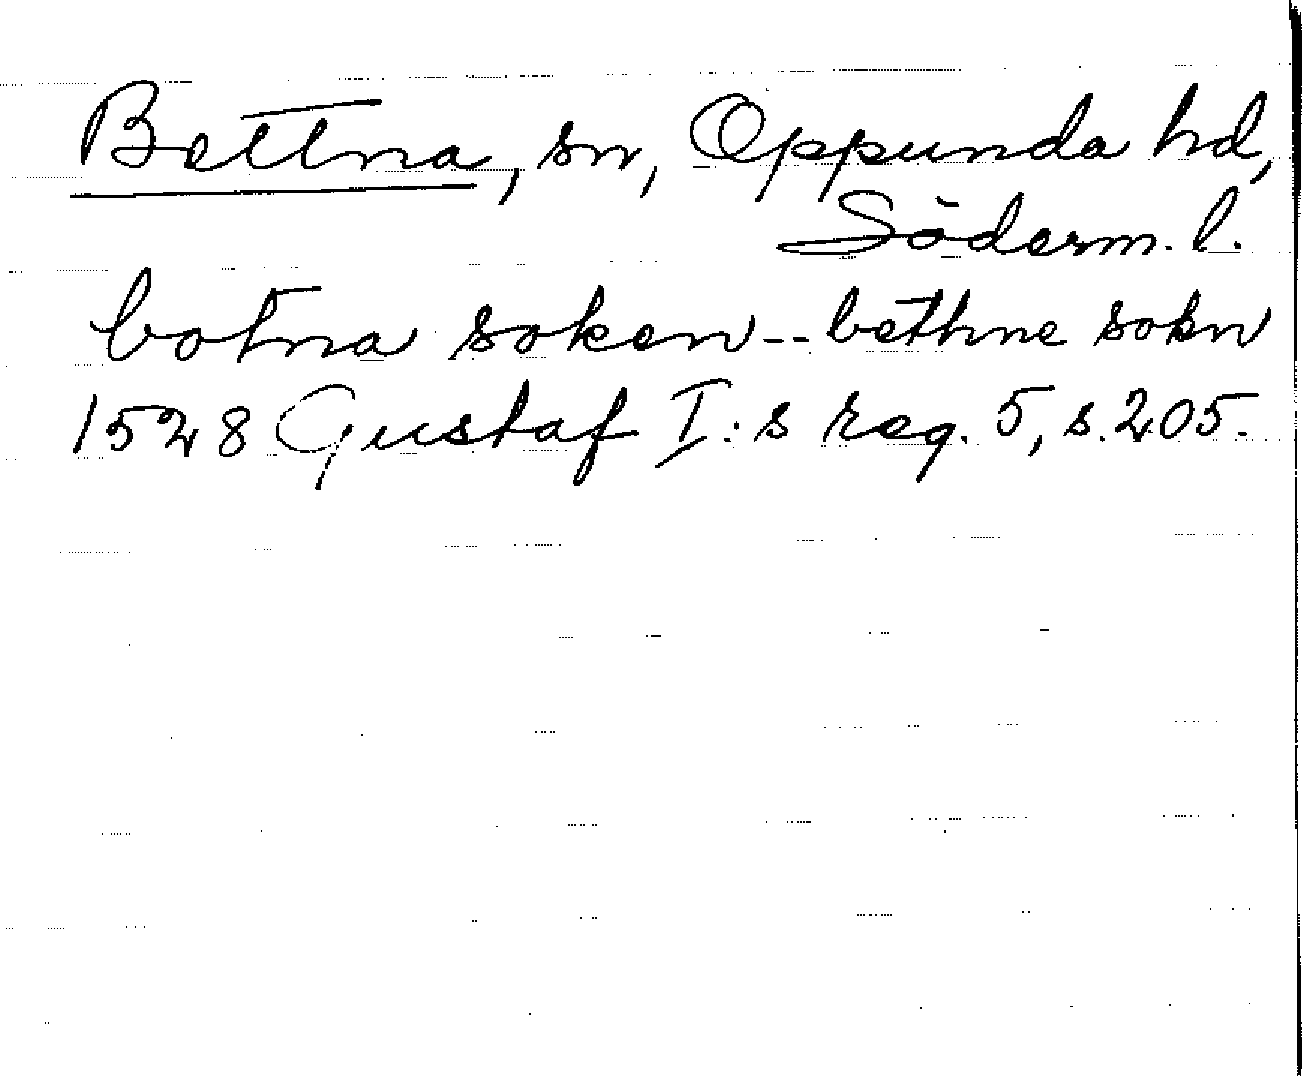 Bettna, sn, Oppunda hd,
Söderm. l.
botna soken -- bethne sokn
1528 Gustaf I:s reg. 5, s. 205.